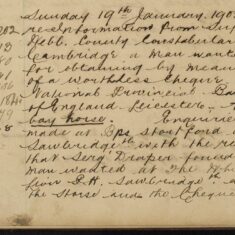 Sunday 19th January, 190
202 re information from Sup
Webb. County Constabular
Cambridge a man want
for obtaining by mean
of a worthless Cheque
National Provincial Ba
of England Leicester.
bay horse. Enquiries
8 made at Bps Stortford
Sawbridgeth with the re
that Sergt Draper found
man wanted at The Wh
Sawbridgeth a
the Horse and the Cheque